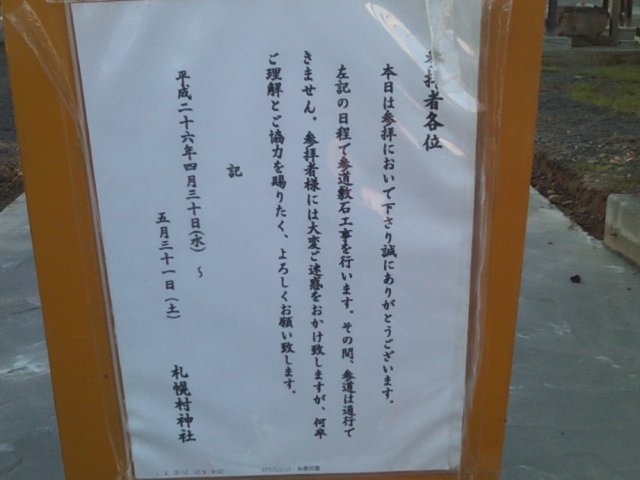 参拝者各位
本日は参拝において下さり誠にありがとうございます。
左記の日程で参道敷石工事を行います。その間、参道は通行で
きません。参拝者様には大変ご迷惑をおかけ致しますが、何卒
ご理解とご協力を賜りたく、よろしくお願い致します。
記
平成二十六年四月三十日(水) ～
五月三十一日(土)
札幌村神社